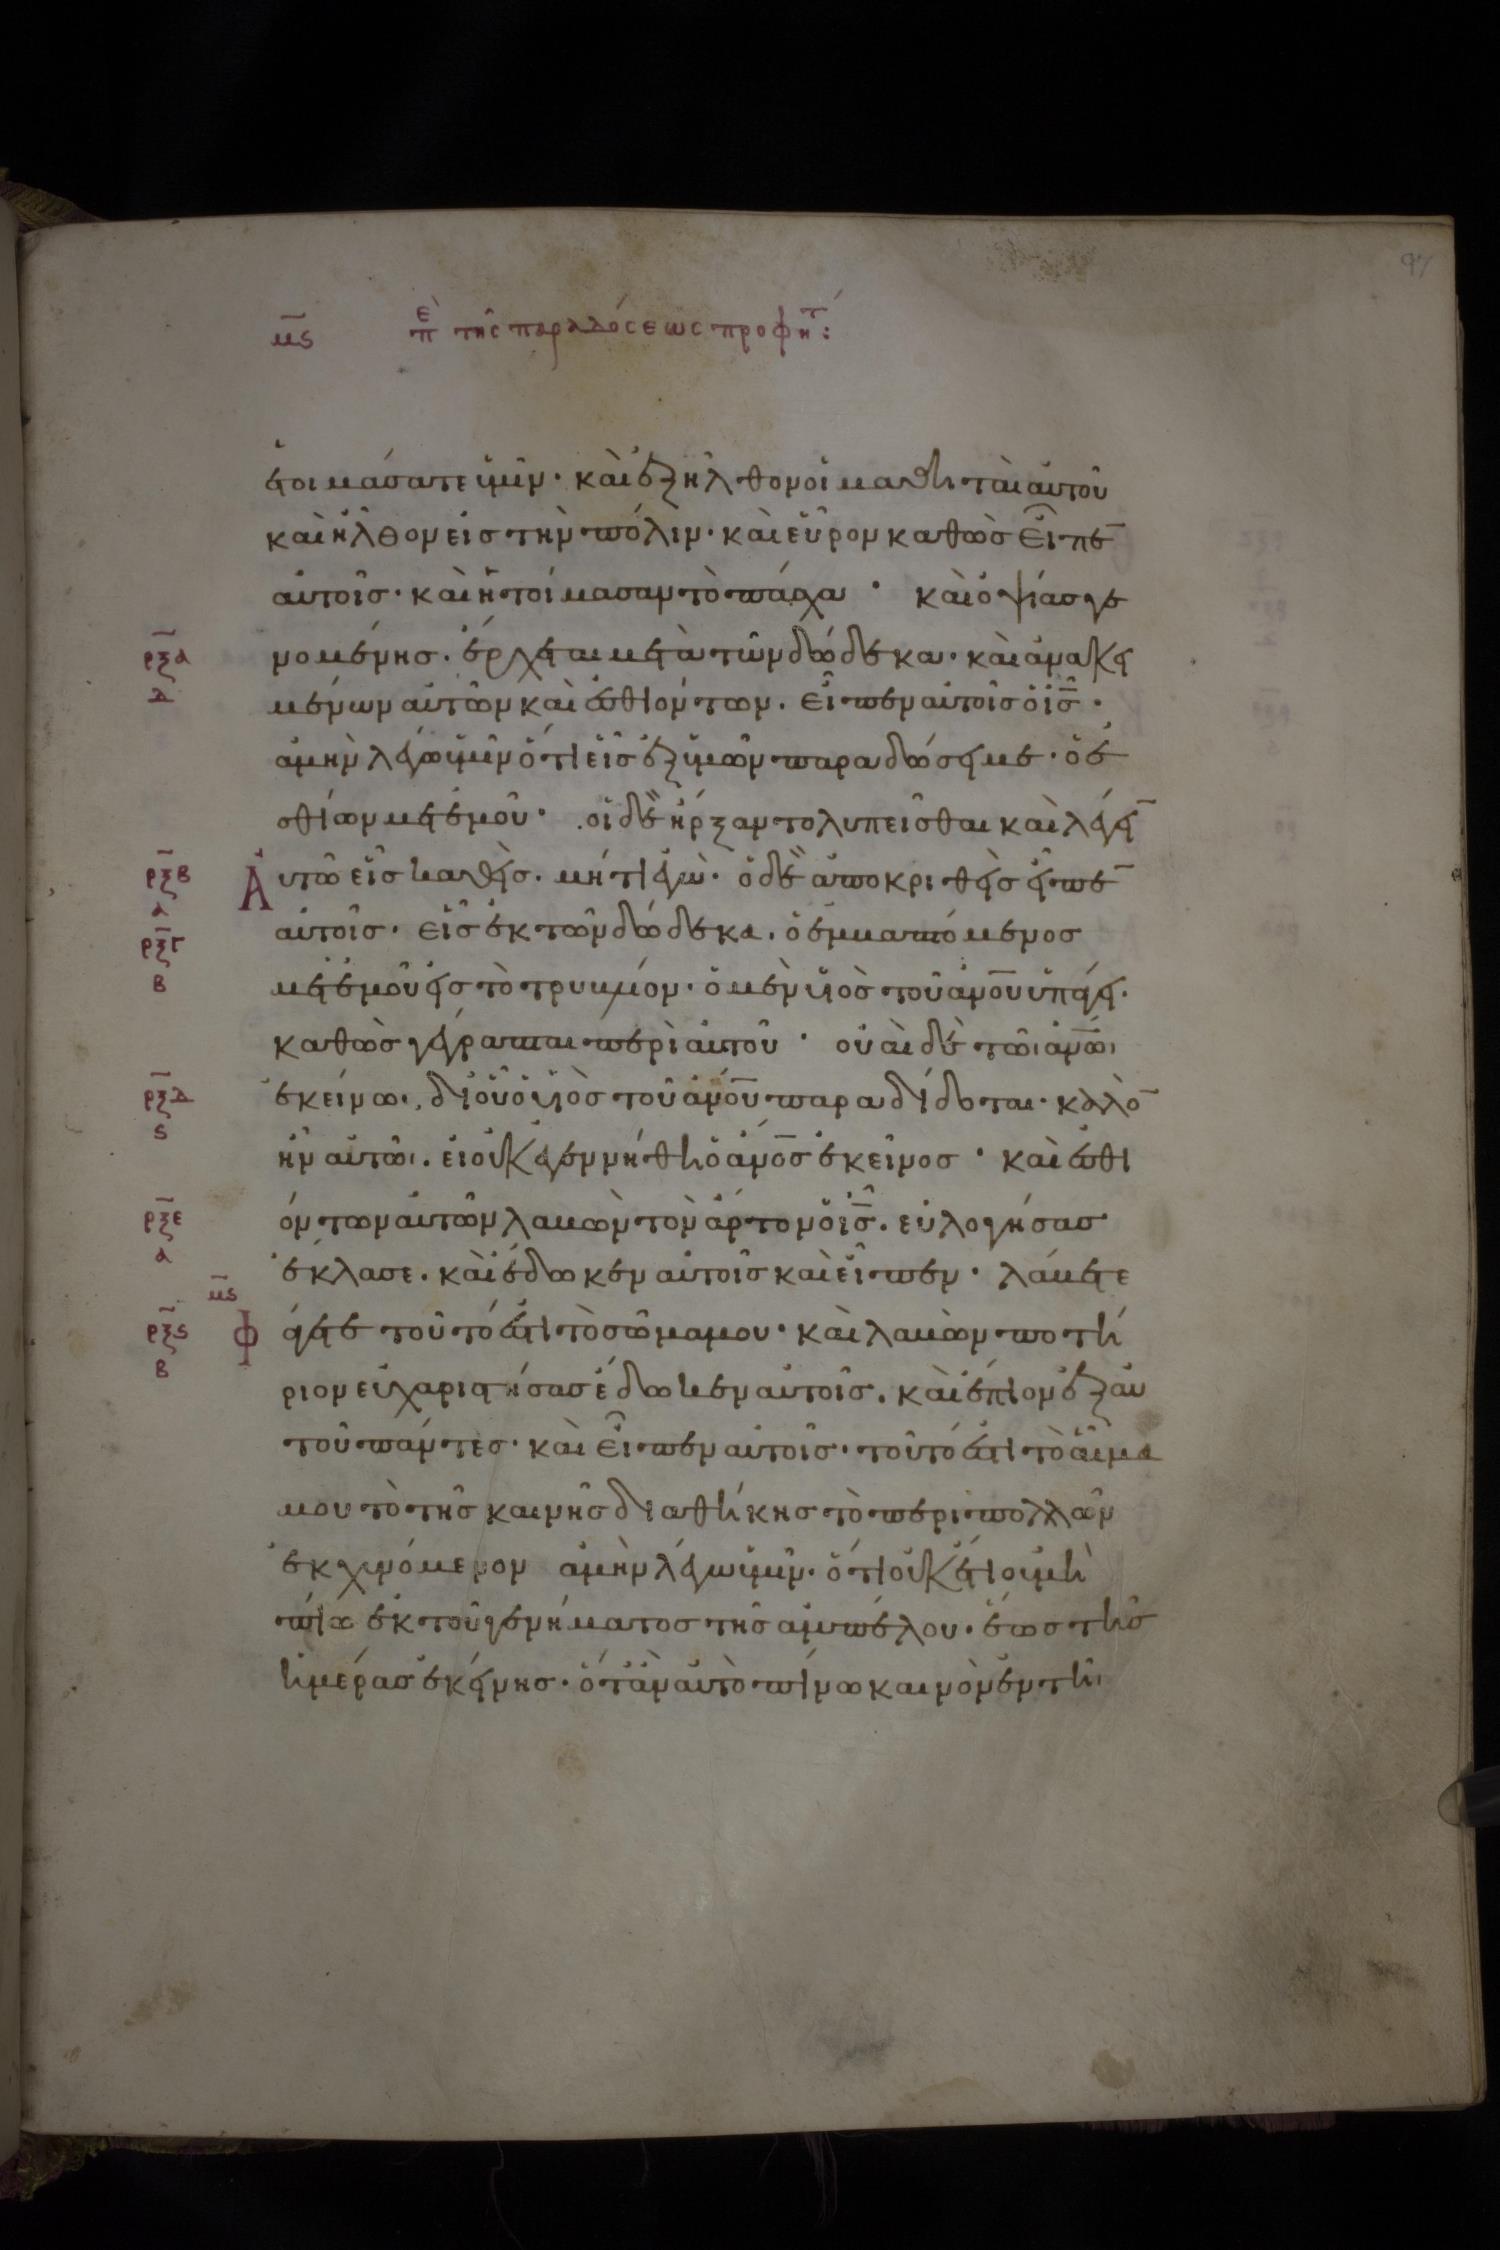 97
μς επ της παραδόσεως προφητ:
ἑτοιμάσατε ἡμῖν· καὶ ἐξῆλθον οἱ μαθηταὶ αὐτοῦ
καὶ ἦλθον εἰς τὴν πόλιν· καὶ εὗρον καθὼς εἶπε̅
αὐτοῖς· καὶ ἡτοίμασαν τὸ πάσχα· καὶ ὀψίας γε
ρξα
νομένης. ἔρχεται μετὰ τῶν δώδεκα· καὶ ἀνακει
δ
μένων αὐτῶν καὶ ἐσθιόντων. εἶπεν αὐτοῖς ὁ ι̅ς̅·
ἀμὴν λέγω ὑμῖν ὅτι εἷς ἐξ ὑμῶν παραδώσει με· ὁ ἐ
σθίων μετ ἐμοῦ· οἱ δὲ ἤρξαντο λυπεῖσθαι καὶ λέγει̅
ρξβ
Αὐτῶ εἷς καθεὶς. μήτι ἐγὼ· ὁ δὲ ἀποκριθεὶς εἶπε̅
α
ρξγ
αὐτοῖς· εἷς ἐκ τῶν δώδεκα. ὁ ἐμβαπτόμενος
β
μετ ἐμοῦ εἰς τὸ τρυβλίον· ὁ μὲν υἱὸς τοῦ ἀν̅ο̅υ̅ ὑπάγει·
καθὼς γέγραπται περὶ αὐτοῦ· οὐαὶ δὲ τῶι ἀν̅ω̅ι
ρξδ
ἐκείνωι, δι οὗ ὁ υἱὸς τοῦ ἀν̅ο̅υ̅ παραδίδοται· καλὸ̅
ς
ἦν αὐτῶι. εἰ οὐκ ἐγεννήθη ὁ ἀν̅ο̅ς̅ ἐκεῖνος· καὶ ἐσθι
ρξε
όντων αὐτῶν λαβὼν τὸν ἄρτον ὁ ι̅ς̅. εὐλογήσας
α
ἔκλασε. καὶ ἔδωκεν αὐτοῖς καὶ εἶπεν· λάβετε
μς
ρξς
φάγετε τοῦτό ἐστι τὸ σῶμα μου· καὶ λαβὼν ποτή
β
ριον εὐχαριστήσας ἔδωκεν αὐτοῖς. καὶ ἔπιον ἐξ αὐ
τοῦ πάντες· καὶ εἶπεν αὐτοῖς· τοῦτό ἐστι τὸ αἷμα
μου τὸ τῆς καινῆς διαθήκης τὸ περι πολλῶν
ἐκχυνόμενον ἀμὴν λέγω ὑμῖν· ὅτι οὐκ ἔτι οὐ μὴ
πίω ἐκ τοῦ γεννήματος τῆς ἀμπέλου· ἕως τῆς
ἡμέρας ἐκείνης· ὅτ ἂν αὐτὸ πίνω καινὸν ἐν τῆι